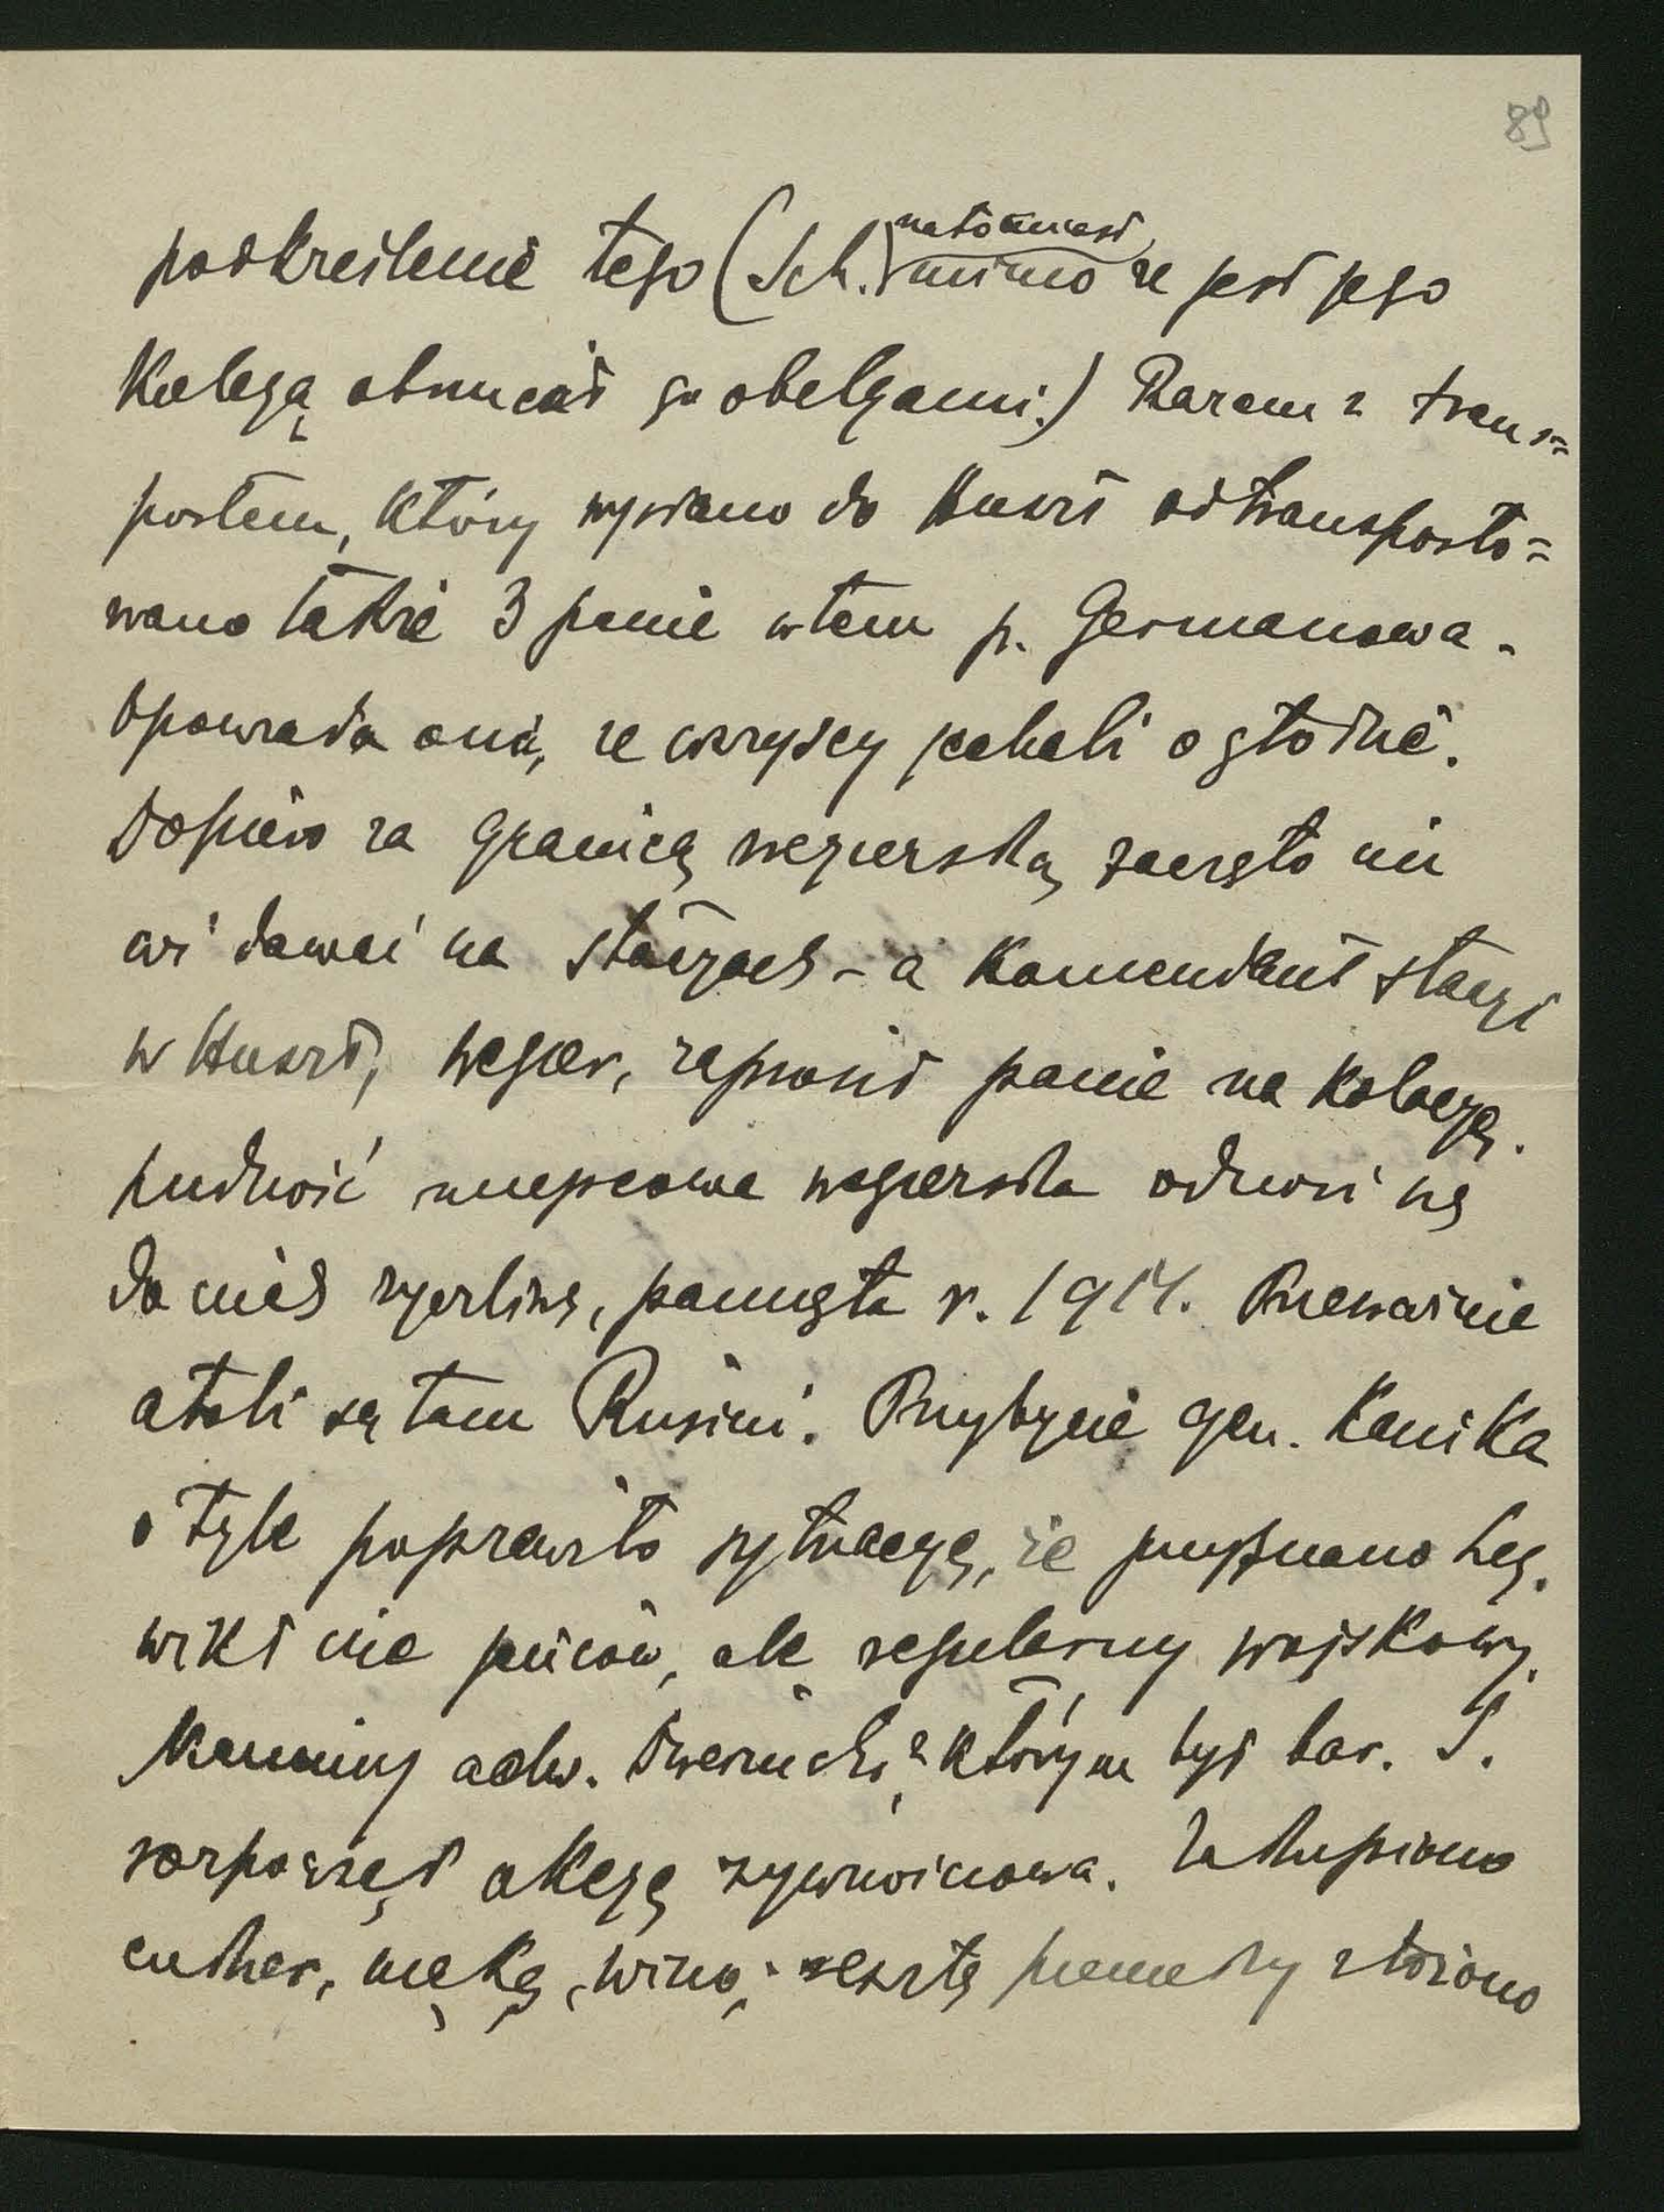 89
podkreślenie tego (Sch.) natomiast
mimo że jest jego
Kolegą obrzucał go obelgami.) Razem z trans=
portem, który wysłano do Huszt odtransporto=
wano także 3 panie wtem p. Germanowa.
Opowiada ona, że wszyscy jechali o głodzie.
Dopiero za granicą węgierską zaczęto im
coś dawać na stacyach - a Komendant stacyi
w Huszt, węgier, zaprosił panie na kolacyę.
Ludność miejscowa węgierska odnosi się
do nich życzliwie, pamięta r. 1914. Przeważnie
atoli są tam Rusini. Przybycie gen. Kanika
o tyle poprawiło sytuacyę, że przyznano Leg.
wikt nie jeńców, ale regularny wojskowy.
adw. Dwernicki, z którym był bar. S.
rozpoczął akcyę żywnościową. Zakupiono
cukier, mąkę, wino, resztę pieniędzy złożono